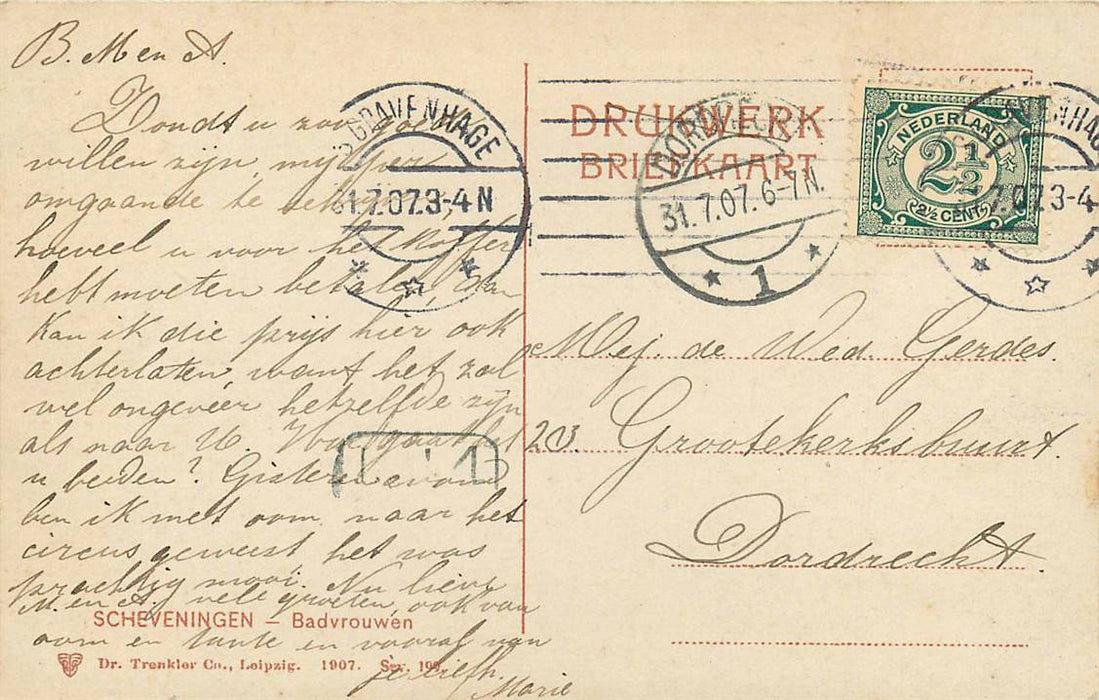 B. M en A.
Zoudt u zoo goed
willen zijn, mij per
omgaande te schrijven,
hoeveel u voor het koffer
hebt moeten betalen, dan
kan ik die prijs hier ook
achterlaten, want het zal
wel ongeveer hetzelfde zijn
als naar U. Hoe gaat het
u beiden? Gisteren avond
ben ik met oom naar het
circus geweest het was
prachtig mooi. Nu lieve
M. en A. vele groeten, ook van
oom en tante en vooral van
je liefh.
Marie
SCHEVENINGEN – Badvrouwen
Dr. Trenkler Co., Leipzig. 1907. Scv.
'S GRAVENHAGE
31.7.07.3-4 N
DRUKWERK
BRIEFKAART
DORDRECHT
31.7.07. 6-7N.
1
NEDERLAND
2½
2½ CENT
7.07.3-4
Mej. de Wed. Gerdes.
Grootekerksbuurt
Dordrecht.